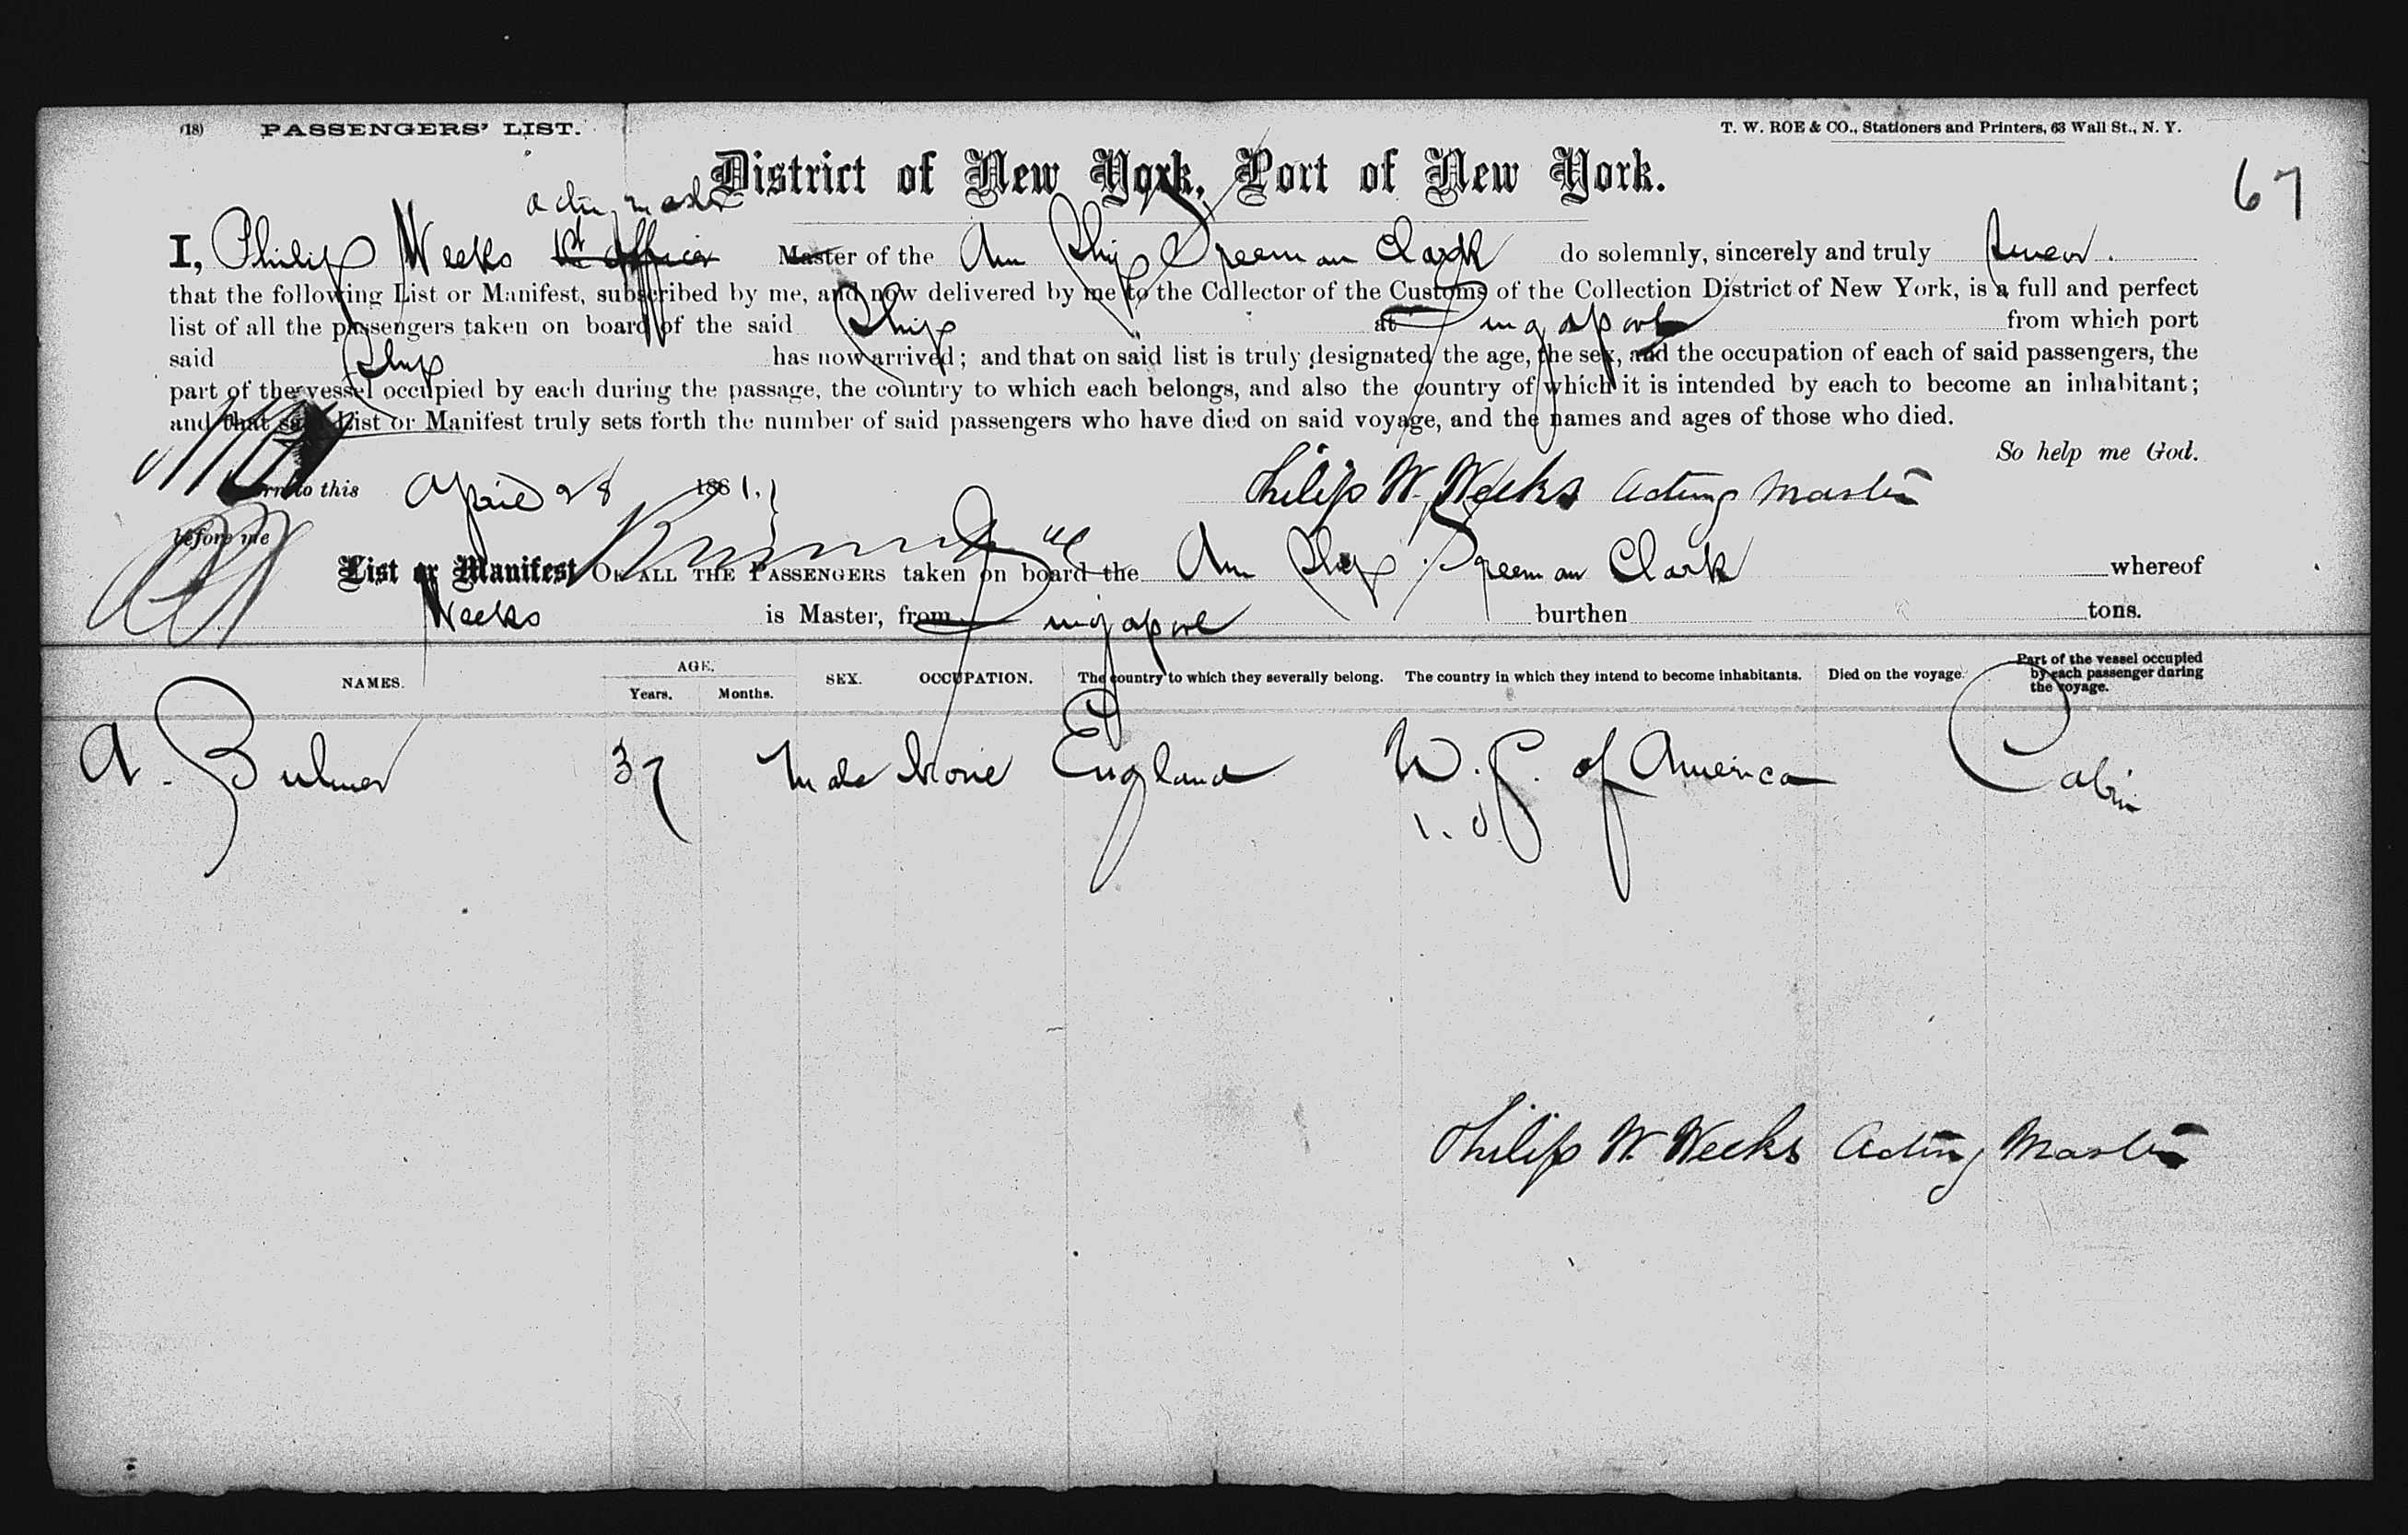 (18) PASSENGERS' LIST. T. W. ROE & CO., Stationers and Printers, 63 Wall St., N. Y.
District of New York, Port of New York.
67
acting master
I, Philip Weeks 1st Officer Master of the Am Ship Freeman Clark do solemnly, sincerely and truly swear.
that the following List or Manifest, subscribed by me, and now delivered by me to the Collector of the Customs of the Collection District of New York, is a full and perfect
list of all the passengers taken on board of the said Ship at Singapore from which port
said Ship has now arrived; and that on said list is truly designated the age, the sex, and the occupation of each of said passengers, the
part of the vessel occupied by each during the passage, the country to which each belongs, and also the country of which it is intended by each to become an inhabitant;
and that said List or Manifest truly sets forth the number of said passengers who have died on said voyage, and the names and ages of those who died.
So help me God.
to this April 28 1881. Philip W. Weeks Acting Master
before me
List or Manifest OF ALL THE PASSENGERS taken on board the Am Ship Freeman Clark whereof
Weeks is Master, from Singapore burthen tons.
NAMES. AGE. Years. Months. SEX. OCCUPATION. The country to which they severally belong. The country in which they intend to become inhabitants. Died on the voyage. Part of the vessel occupied by each passenger during the voyage.
A. Bulmer 37 Male None England U. S. of America Cabin
Philip W. Weeks Acting Master